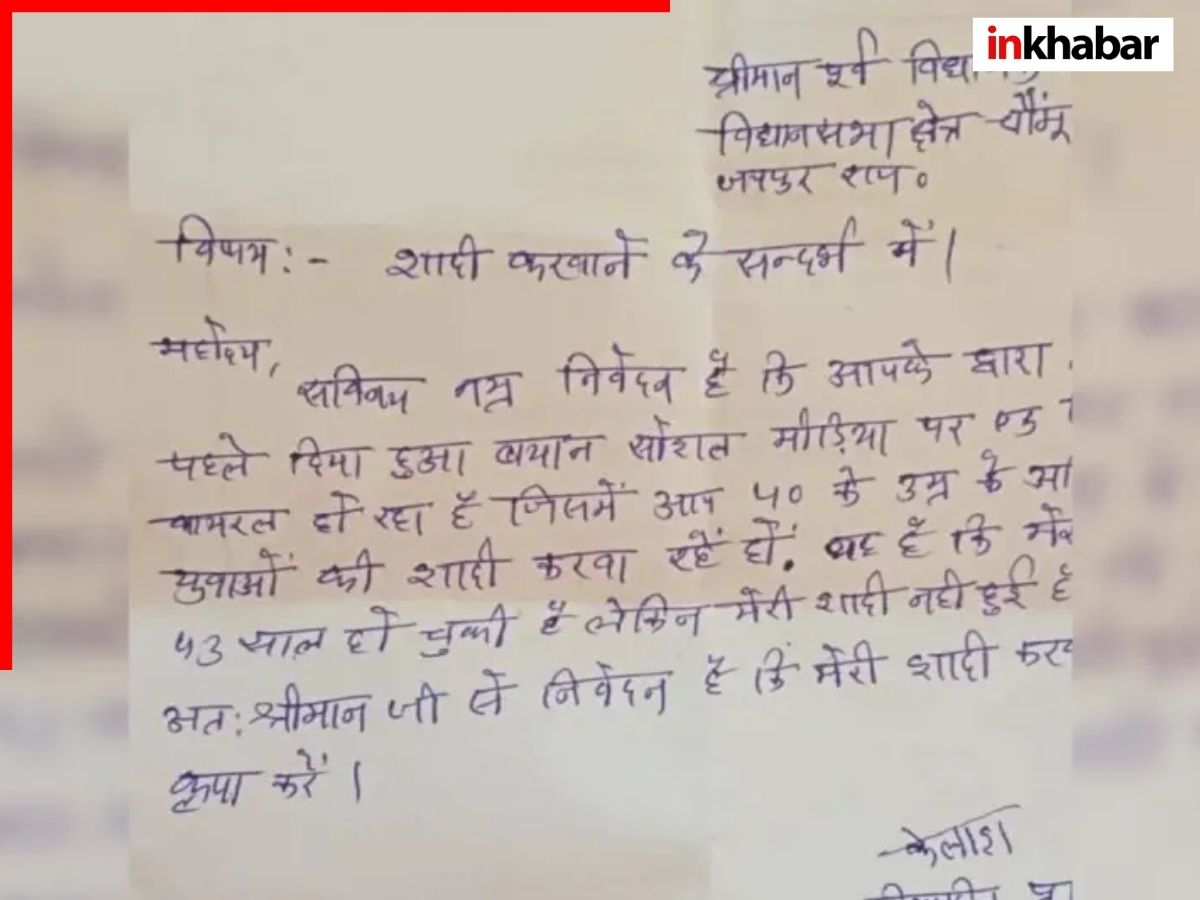 inkhabar
श्रीमान पूर्व
विधानसभा क्षेत्र चौंमू
जयपुर राज०
विषय:- शादी करवाने के सन्दर्भ में।
महोदय,
सविनय नम्र निवेदन है कि आपके द्वारा
पहले दिया हुआ बयान सोशल मीडिया पर
वायरल हो रहा है जिसमें आप ५० के उम्र के
युवाओं की शादी करवा रहें हों. यह है कि
५३ साल हो चुकी है लेकिन मेरी शादी नही हुई है
अत: श्रीमान जी से निवेदन है कि मेरी शादी
कृपा करें।
केलाश